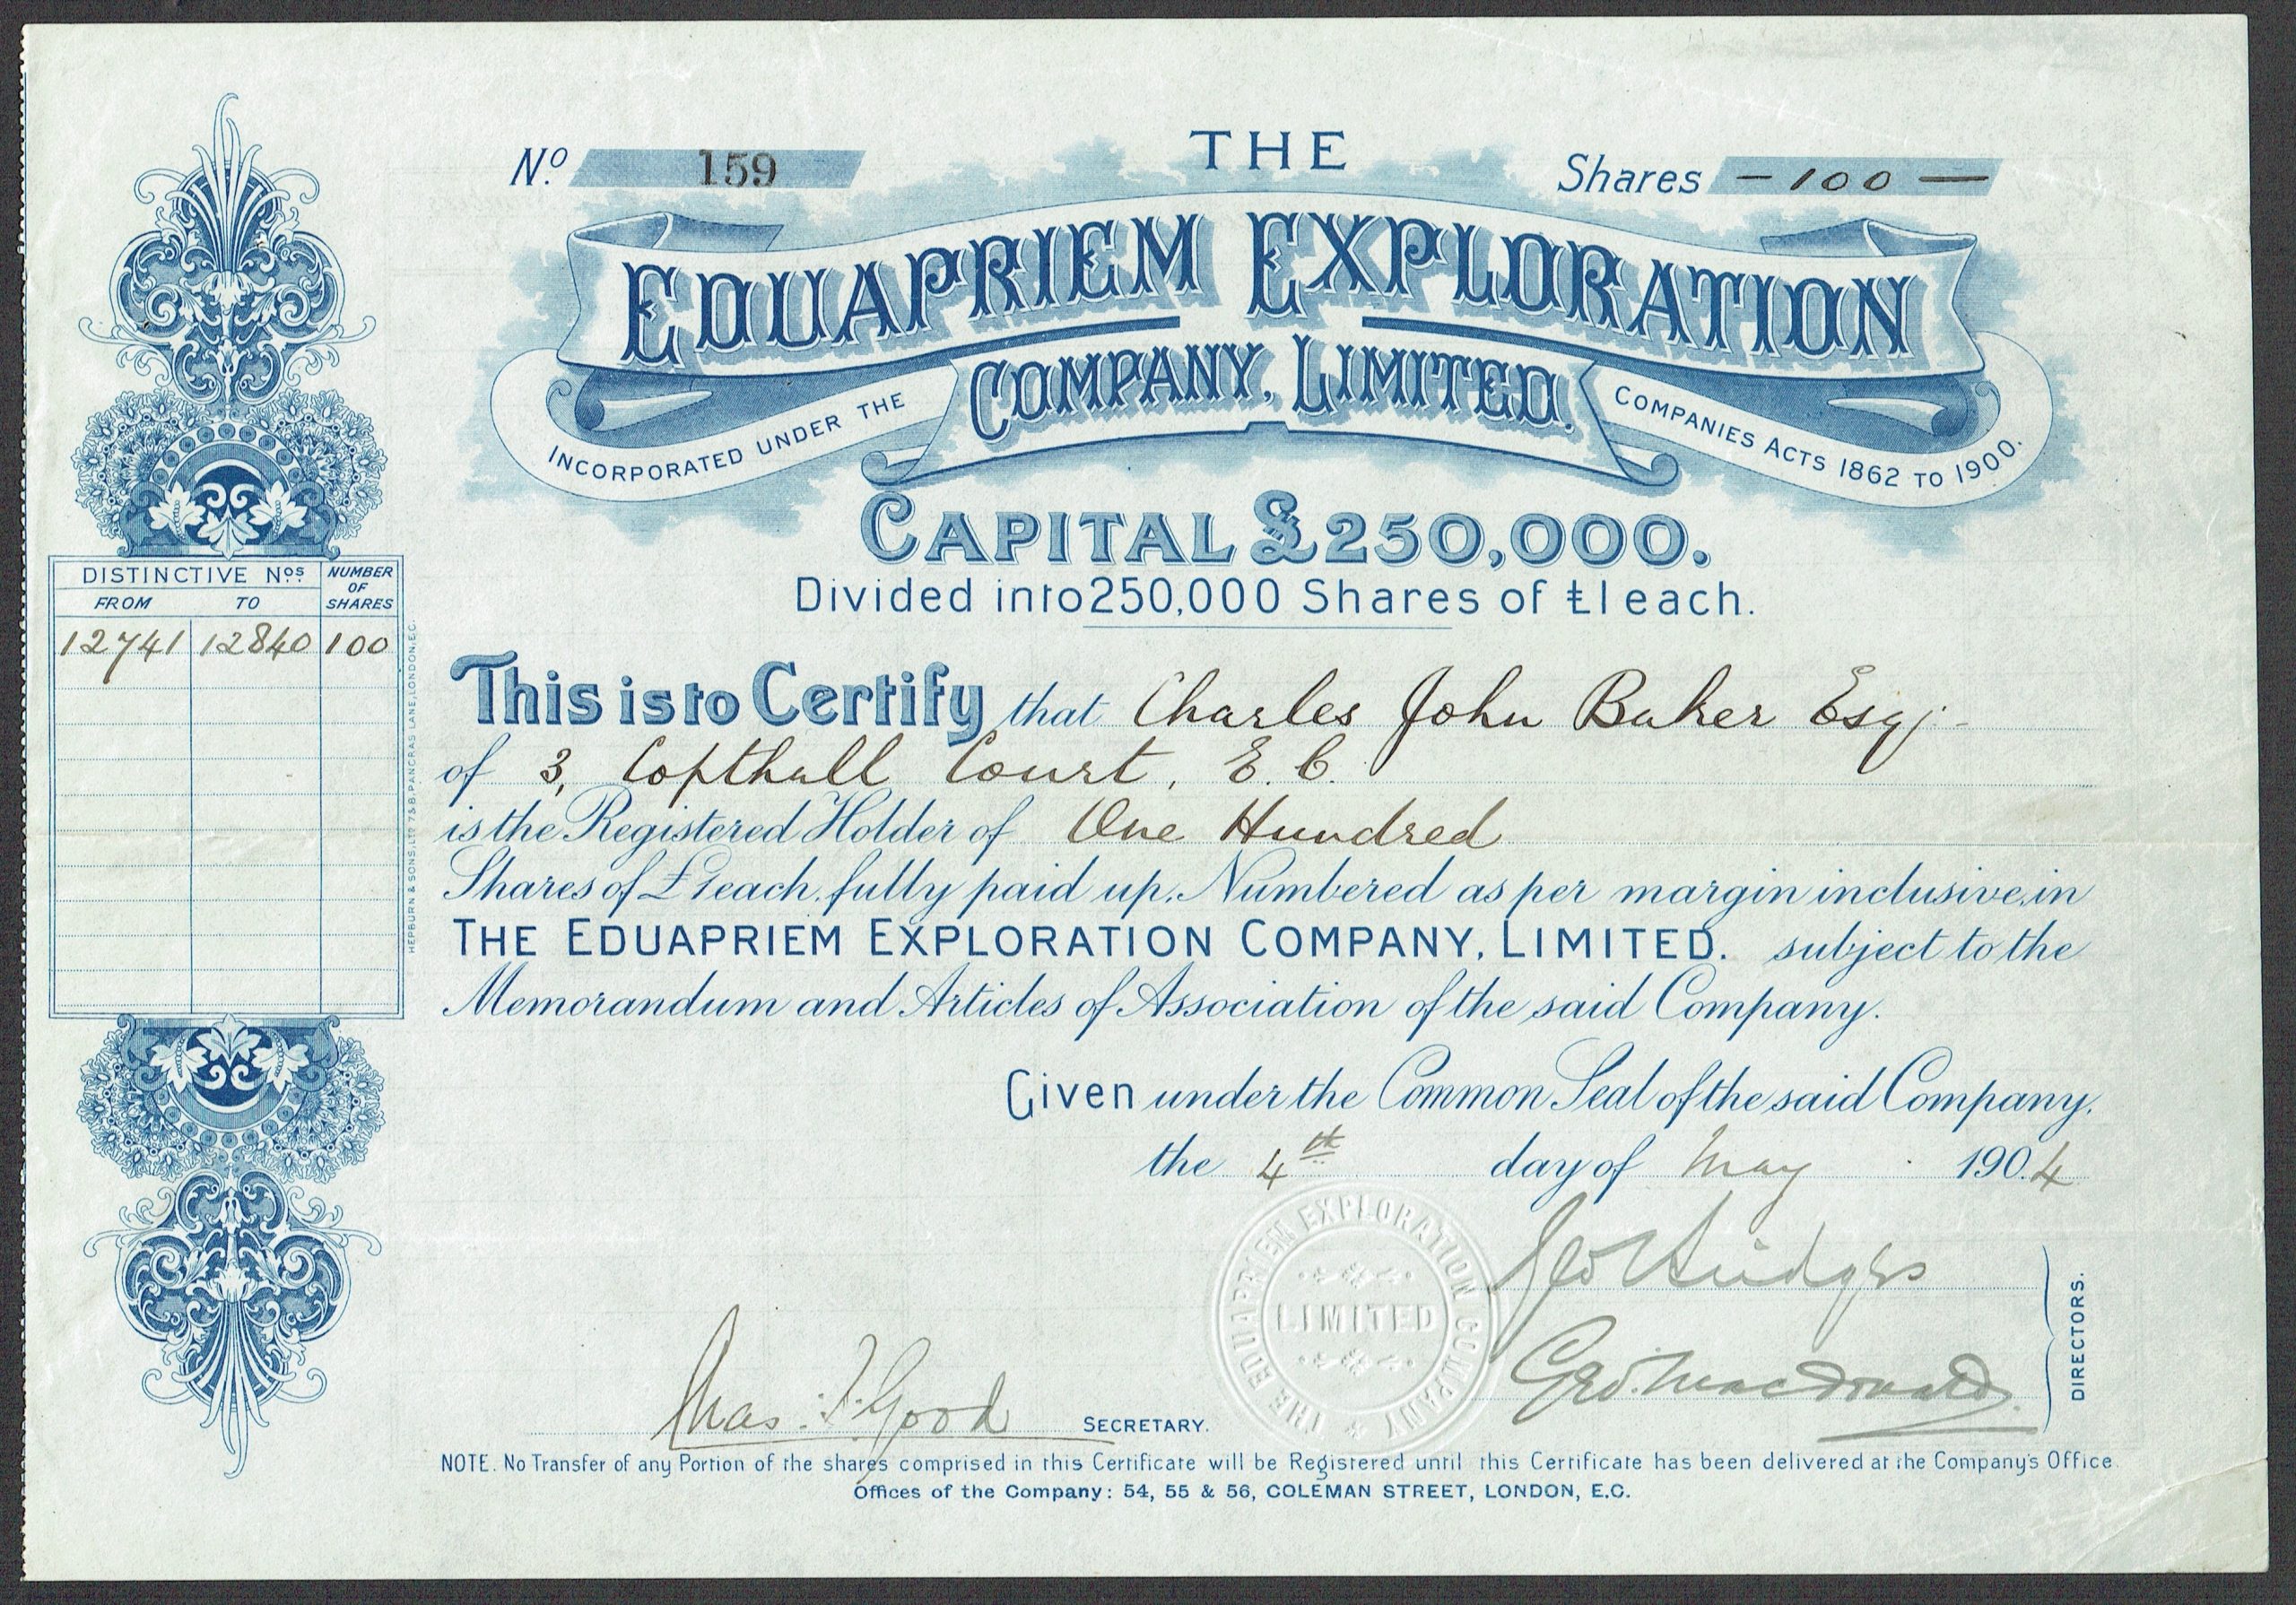 No. 159
THE
Shares — 100 —
EDUAPRIEM EXPLORATION
COMPANY, LIMITED.
INCORPORATED UNDER THE
COMPANIES ACTS 1862 TO 1900.
CAPITAL £250,000.
Divided into 250,000 Shares of £1 each.
DISTINCTIVE Nos. NUMBER OF SHARES
FROM TO
12741 12840 100
HEPBURN & SONS, LTD 7 & 8, PANCRAS LANE, LONDON, E.C.
This is to Certify that Charles John Baker Esq;
of 3, Copthall Court, E.C.
is the Registered Holder of One Hundred
Shares of £1 each, fully paid up, Numbered as per margin inclusive, in
THE EDUAPRIEM EXPLORATION COMPANY, LIMITED. subject to the
Memorandum and Articles of Association of the said Company.
Given under the Common Seal of the said Company,
the 4th day of May 1904
THE EDUAPRIEM EXPLORATION COMPANY
LIMITED
Geo. Macdonald
DIRECTORS.
Chas. F. Good SECRETARY.
NOTE. No Transfer of any Portion of the shares comprised in this Certificate will be Registered until this Certificate has been delivered at the Company's Office.
Offices of the Company: 54, 55 & 56, COLEMAN STREET, LONDON, E.C.